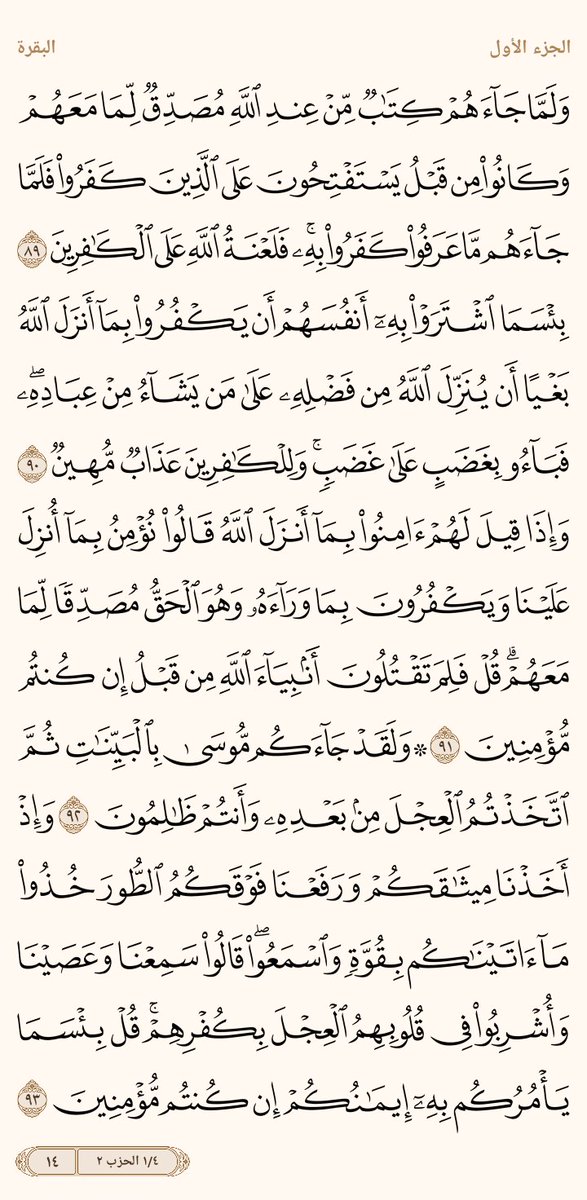 الجزء الأول
البقرة
وَلَمَّا جَآءَهُمْ كِتَٰبٌ مِّنْ عِندِ ٱللَّهِ مُصَدِّقٌ لِّمَا مَعَهُمْ
وَكَانُوا۟ مِن قَبْلُ يَسْتَفْتِحُونَ عَلَى ٱلَّذِينَ كَفَرُوا۟ فَلَمَّا
جَآءَهُم مَّا عَرَفُوا۟ كَفَرُوا۟ بِهِۦ ۚ فَلَعْنَةُ ٱللَّهِ عَلَى ٱلْكَٰفِرِينَ ٨٩
بِئْسَمَا ٱشْتَرَوْا۟ بِهِۦٓ أَنفُسَهُمْ أَن يَكْفُرُوا۟ بِمَآ أَنزَلَ ٱللَّهُ
بَغْيًا أَن يُنَزِّلَ ٱللَّهُ مِن فَضْلِهِۦ عَلَىٰ مَن يَشَآءُ مِنْ عِبَادِهِۦ ۖ
فَبَآءُو بِغَضَبٍ عَلَىٰ غَضَبٍ ۚ وَلِلْكَٰفِرِينَ عَذَابٌ مُّهِينٌ ٩٠
وَإِذَا قِيلَ لَهُمْ ءَامِنُوا۟ بِمَآ أَنزَلَ ٱللَّهُ قَالُوا۟ نُؤْمِنُ بِمَآ أُنزِلَ
عَلَيْنَا وَيَكْفُرُونَ بِمَا وَرَآءَهُۥ وَهُوَ ٱلْحَقُّ مُصَدِّقًا لِّمَا
مَعَهُمْ ۗ قُلْ فَلِمَ تَقْتُلُونَ أَنۢبِيَآءَ ٱللَّهِ مِن قَبْلُ إِن كُنتُم
مُّؤْمِنِينَ ٩١ ۞ وَلَقَدْ جَآءَكُم مُّوسَىٰ بِٱلْبَيِّنَٰتِ ثُمَّ
ٱتَّخَذْتُمُ ٱلْعِجْلَ مِنۢ بَعْدِهِۦ وَأَنتُمْ ظَٰلِمُونَ ٩٢ وَإِذْ
أَخَذْنَا مِيثَٰقَكُمْ وَرَفَعْنَا فَوْقَكُمُ ٱلطُّورَ خُذُوا۟
مَآ ءَاتَيْنَٰكُم بِقُوَّةٍ وَٱسْمَعُوا۟ ۖ قَالُوا۟ سَمِعْنَا وَعَصَيْنَا
وَأُشْرِبُوا۟ فِى قُلُوبِهِمُ ٱلْعِجْلَ بِكُفْرِهِمْ ۚ قُلْ بِئْسَمَا
يَأْمُرُكُم بِهِۦٓ إِيمَٰنُكُمْ إِن كُنتُم مُّؤْمِنِينَ ٩٣
١/٤ الحزب ٢
١٤